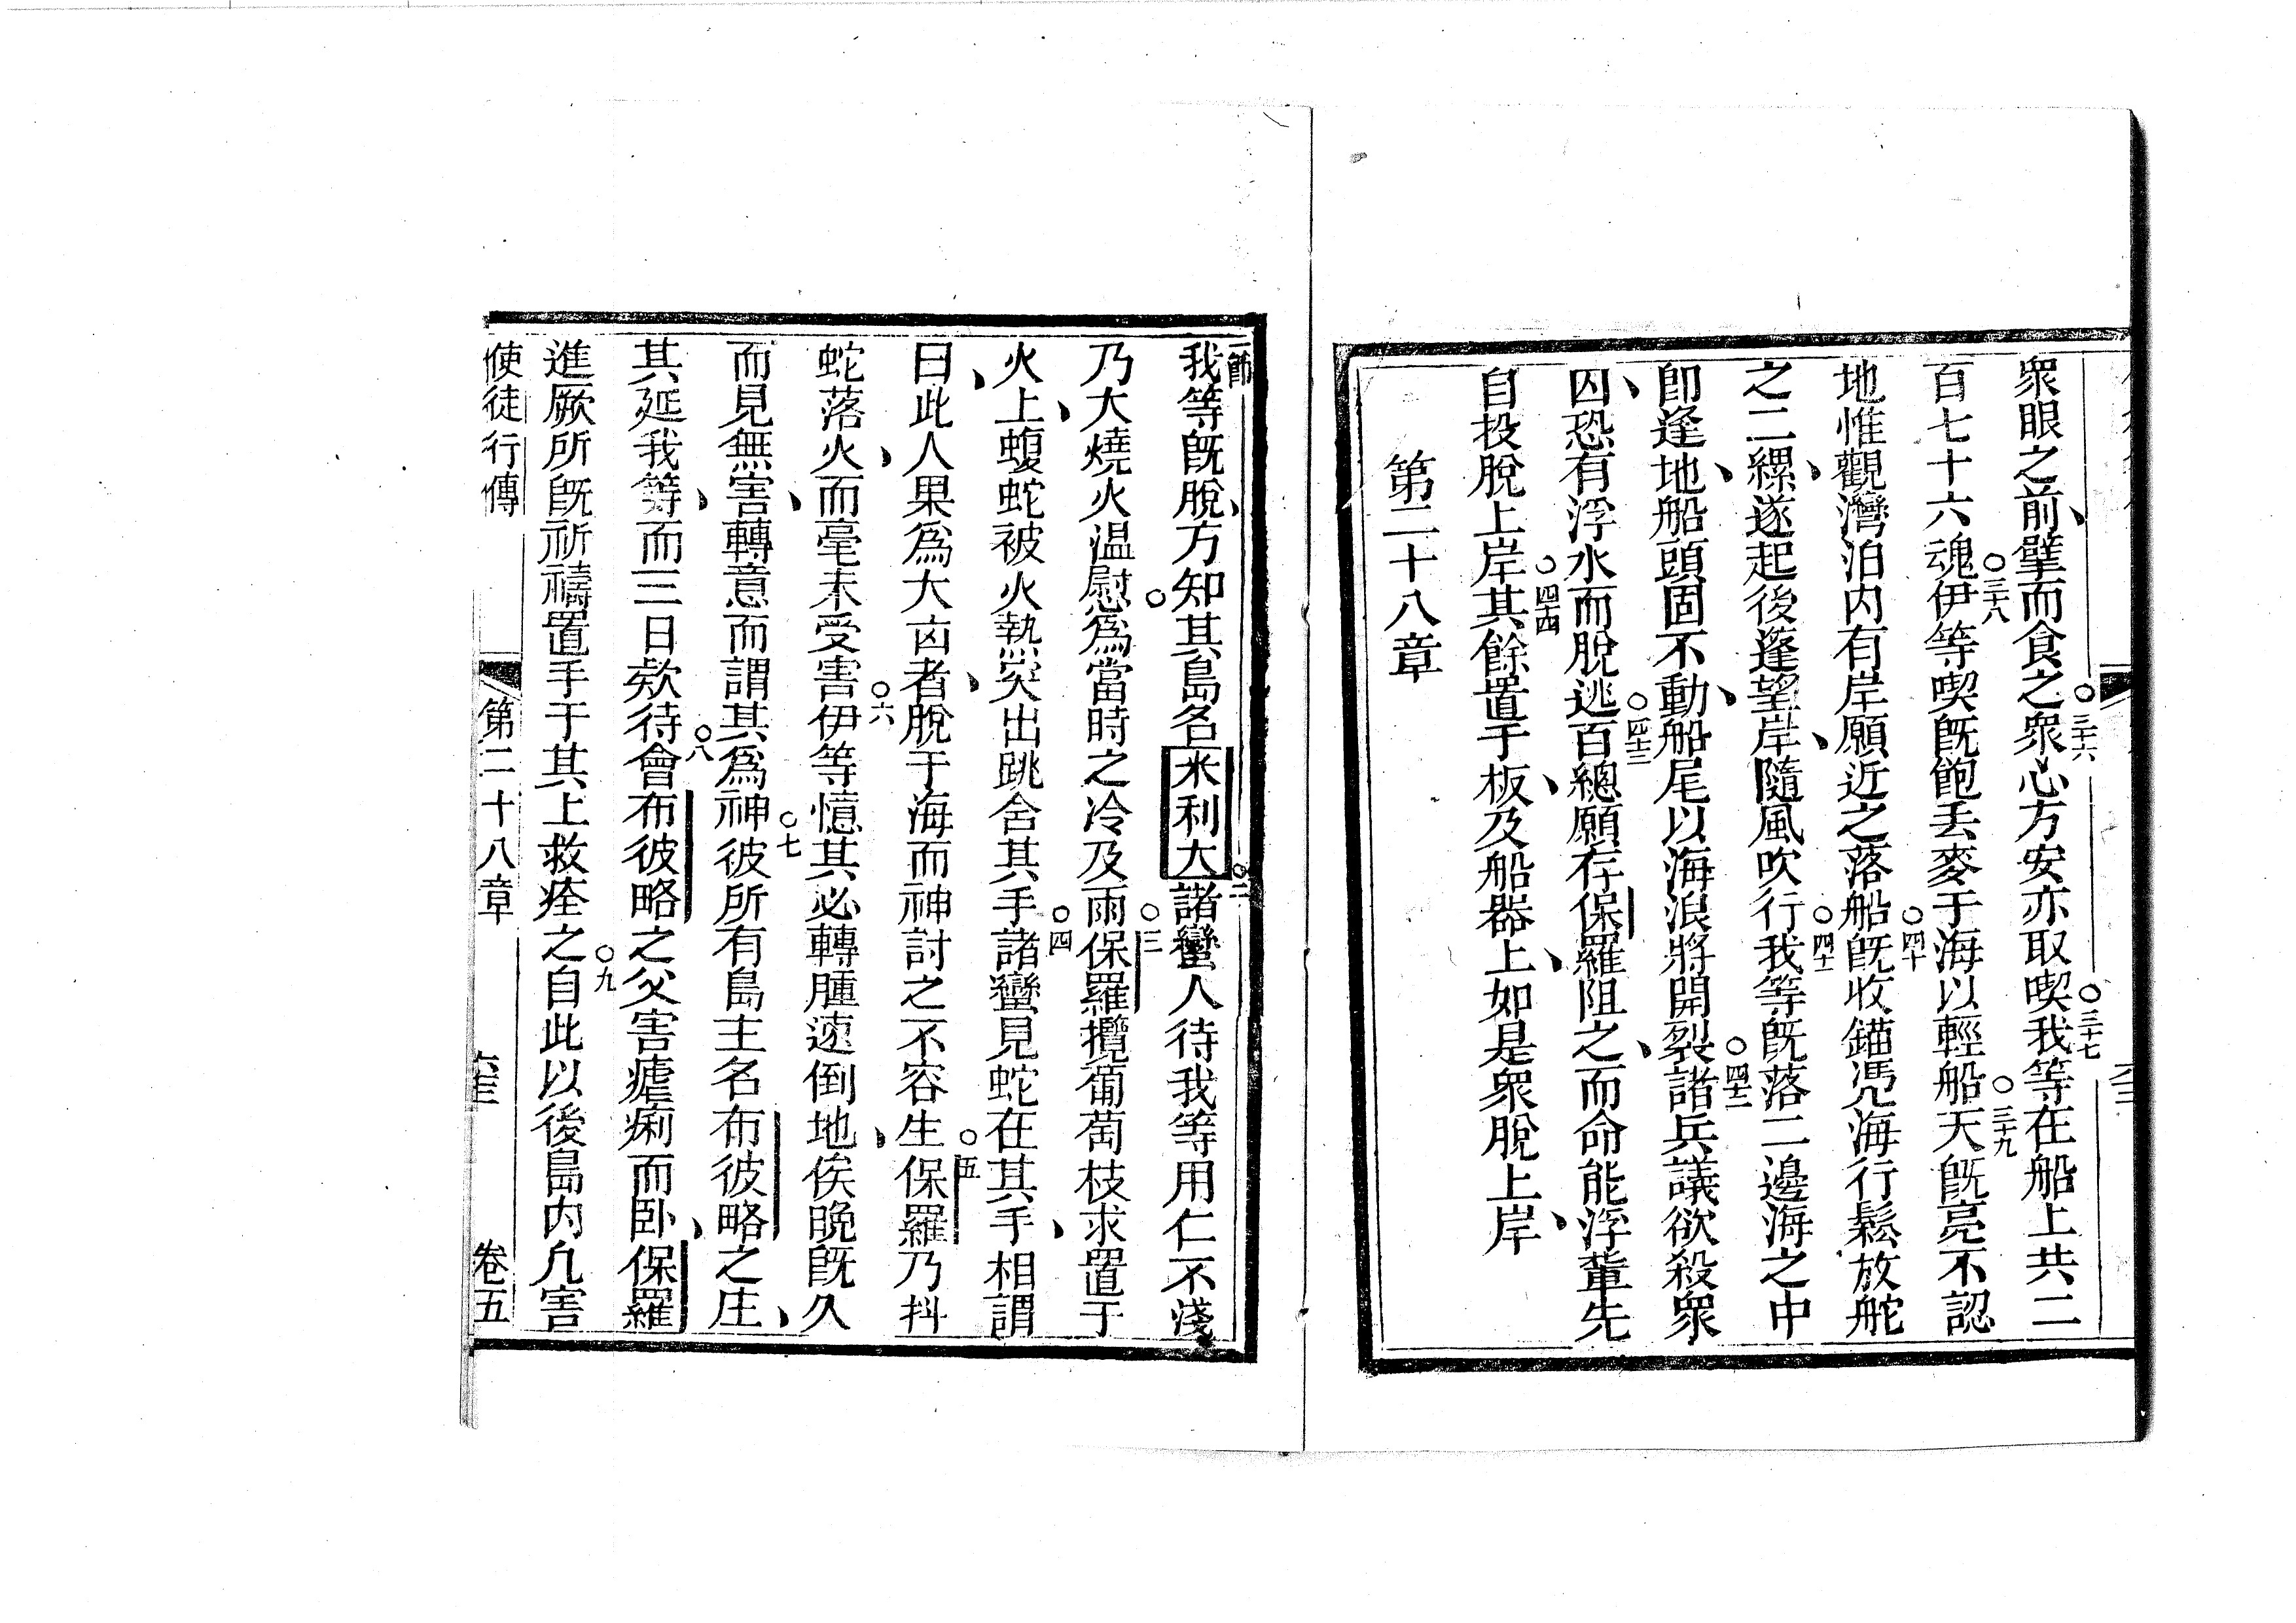 衆眼之前、擘而食之。三十六衆心方安亦取喫。三十七我等在船上共二
百七十六魂。三十八伊等喫旣飽丢麥于海以輕船。三十九天旣亮不認
地惟觀灣泊内有岸願近之落船。四十旣收錨慿海行鬆放舵
之二縲、遂起後篷望岸、隨風吹行。四十一我等旣落二邊海之中
卽逢地、船頭固不動、船尾以海浪將開裂。四十二諸兵議欲殺衆
囚、恐有浮水而脫逃。四十三百總願存保羅阻之、而命能浮輩先
自投脫上岸。四十四其餘置于板、及船器上、如是衆脫上岸、
第二十八章
一節我等旣脫、方知其島名米利大。二諸蠻人待我等用仁不淺
乃大燒火温慰。爲當時之冷及雨。三保羅攬葡萄枝求置于
火上、蝮蛇被火熱突出跳舍其手。四諸蠻見蛇在其手、相謂
曰、此人果爲大凶者、脫于海而神討之不容生。五保羅乃抖
蛇落火、而毫未受害。六伊等憶其必轉腫遽倒地、俟晚旣久
而見無害、轉意而謂其爲神。七彼所有島主名布彼略之庄、
其延我等、而三日欵待。八會布彼略之父害瘧痢而卧、保羅
進厥所旣祈禱置手于其上救痊之。九自此以後島内凡害
使徒行傳 第二十八章 卷五